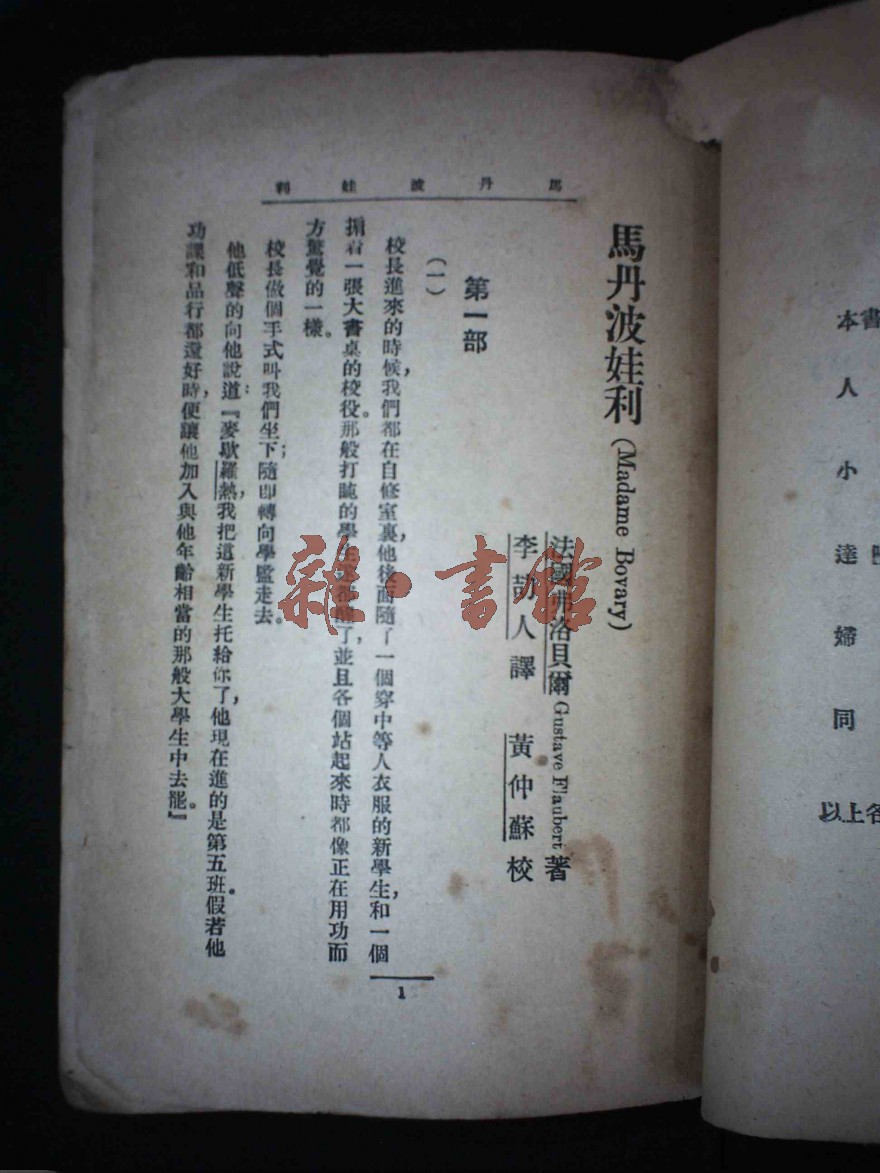 馬丹波娃利
馬丹波娃利 (Madame Bovary)
法國弗洛貝爾 Gustave Flaubert 著
李劼人譯 黃仲蘇校
第一部
(一)
校長進來的時候,我們都在自修室裏,他後面隨了一個穿中等人衣服的新學生,和一個
搚着一張大書桌的校役。那般打盹的學生都醒了,並且各個站起來時都像正在用功而
方驚覺的一樣。
校長做個手式叫我們坐下;隨即轉向學監走去。
他低聲的向他說道:『麥歇羅熱,我把這新學生托給你了,他現在進的是第五班。假若他
功課和品行都還好時,便讓他加入與他年齡相當的那般大學生中去罷。』
1
本書
人
小
達
婦
同
以上各
雜·書館